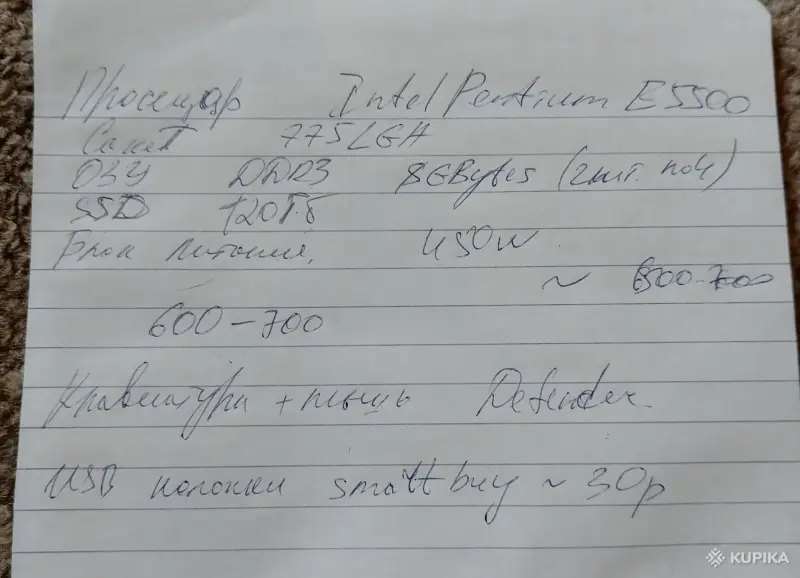 Процецар Intel Pentium E5500
Сокет 775LGA
ОЗУ DDR3 8GBytes (2шт. по4)
SSD 120Гб
Блок питания. 450w
~
600-700
Клавиатура + мышь Defender
USB колонки smartbuy ~ 30р
KUPIKA